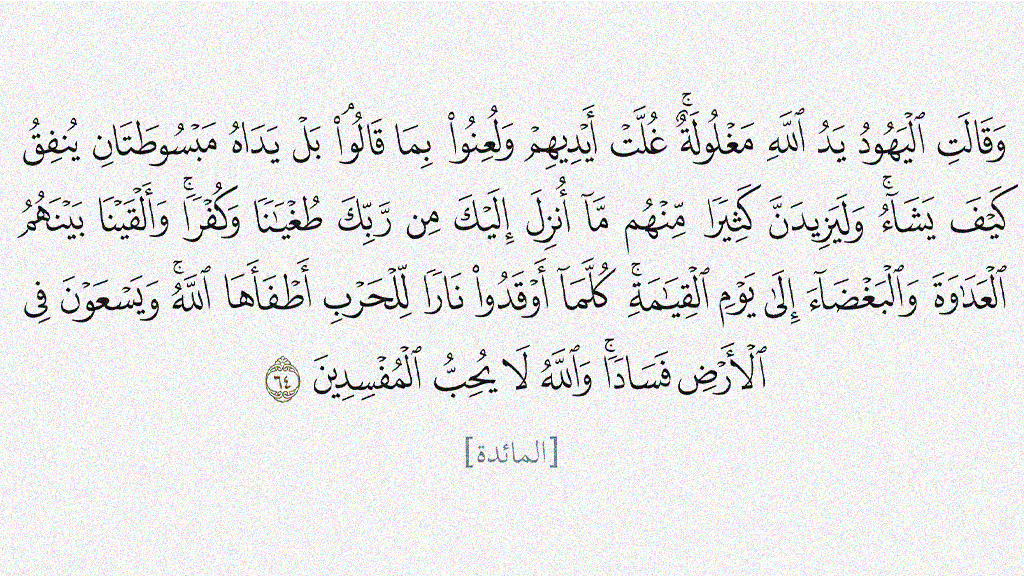 وَقَالَتِ ٱلۡيَهُودُ يَدُ ٱللَّهِ مَغۡلُولَةٌۚ غُلَّتۡ أَيۡدِيهِمۡ وَلُعِنُواْ بِمَا قَالُواْۘ بَلۡ يَدَاهُ مَبۡسُوطَتَانِ يُنفِقُ
كَيۡفَ يَشَآءُۚ وَلَيَزِيدَنَّ كَثِيرٗا مِّنۡهُم مَّآ أُنزِلَ إِلَيۡكَ مِن رَّبِّكَ طُغۡيَٰنٗا وَكُفۡرٗاۚ وَأَلۡقَيۡنَا بَيۡنَهُمُ
ٱلۡعَدَٰوَةَ وَٱلۡبَغۡضَآءَ إِلَىٰ يَوۡمِ ٱلۡقِيَٰمَةِۚ كُلَّمَآ أَوۡقَدُواْ نَارٗا لِّلۡحَرۡبِ أَطۡفَأَهَا ٱللَّهُۚ وَيَسۡعَوۡنَ فِي
ٱلۡأَرۡضِ فَسَادٗاۚ وَٱللَّهُ لَا يُحِبُّ ٱلۡمُفۡسِدِينَ ٦٤
[المائدة]